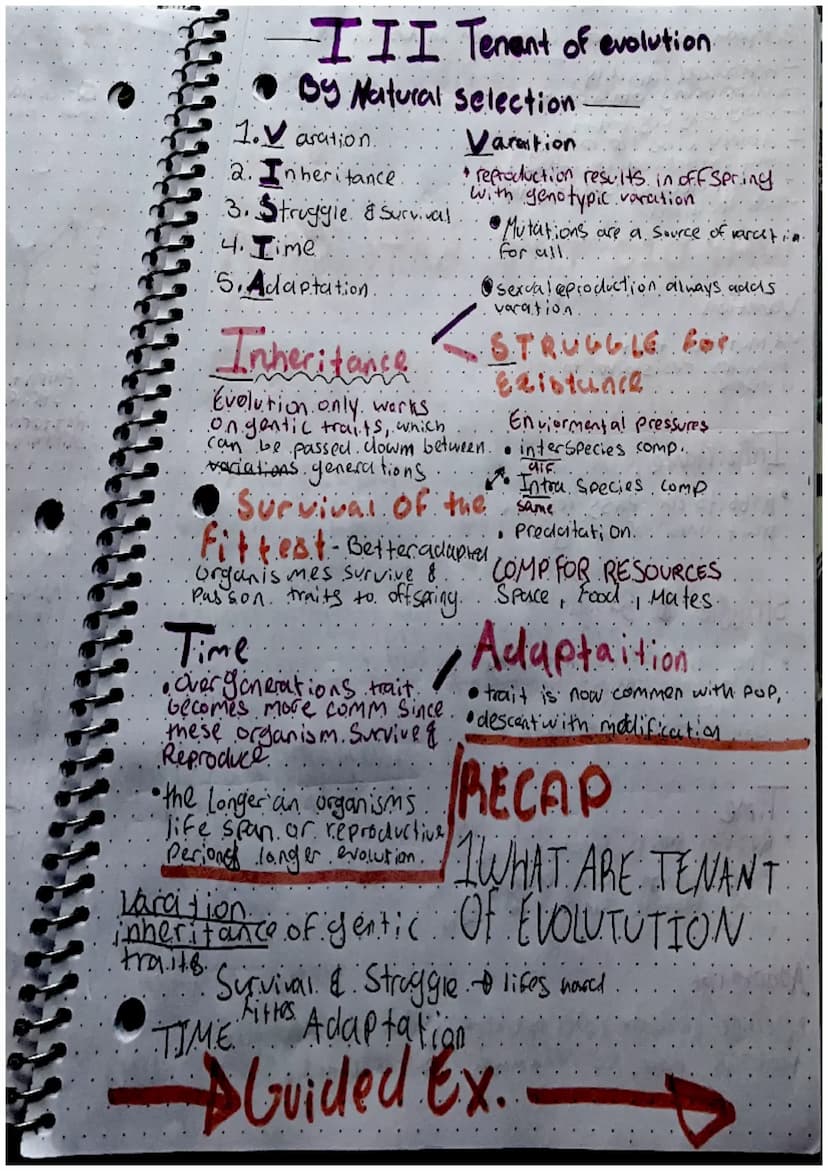 III Tenant of evolution
By Natural selection
1. Varation
2. Inheritance
3. Struggle & survival
4. Time
5. Adaptation
Varation
reproduction results in offspring
with genotypic varation
Mutations are a source of varation
for all.
sexual reproduction always adds
varation
Inheritance
Evolution only works
on gentic traits, which
can be passed dowm between
variations generations
STRUGGLE For
Existance
Enviormental pressures
• interspecies comp.
dif.
• Intra species comp
same
• Predatation
COMP FOR RESOURCES
Space, Food, Mates
Survival of the
fittest - Better adapted
organismes survive &
Pass on traits to offspring.
Time
• over generations trait
becomes more comm since
these organism survive &
Reproduce
• the longer an organisms
life span or reproductive
Period longer evolution.
Adaptaition
• trait is now common with pop,
• descent with modification
RECAP
1 WHAT ARE TENANT
OF EVOLUTUTION
Varation
inheritance of gentic
traits
Survival & Struggle → lifes hard
Fittes
TIME Adaptation
Guided Ex.